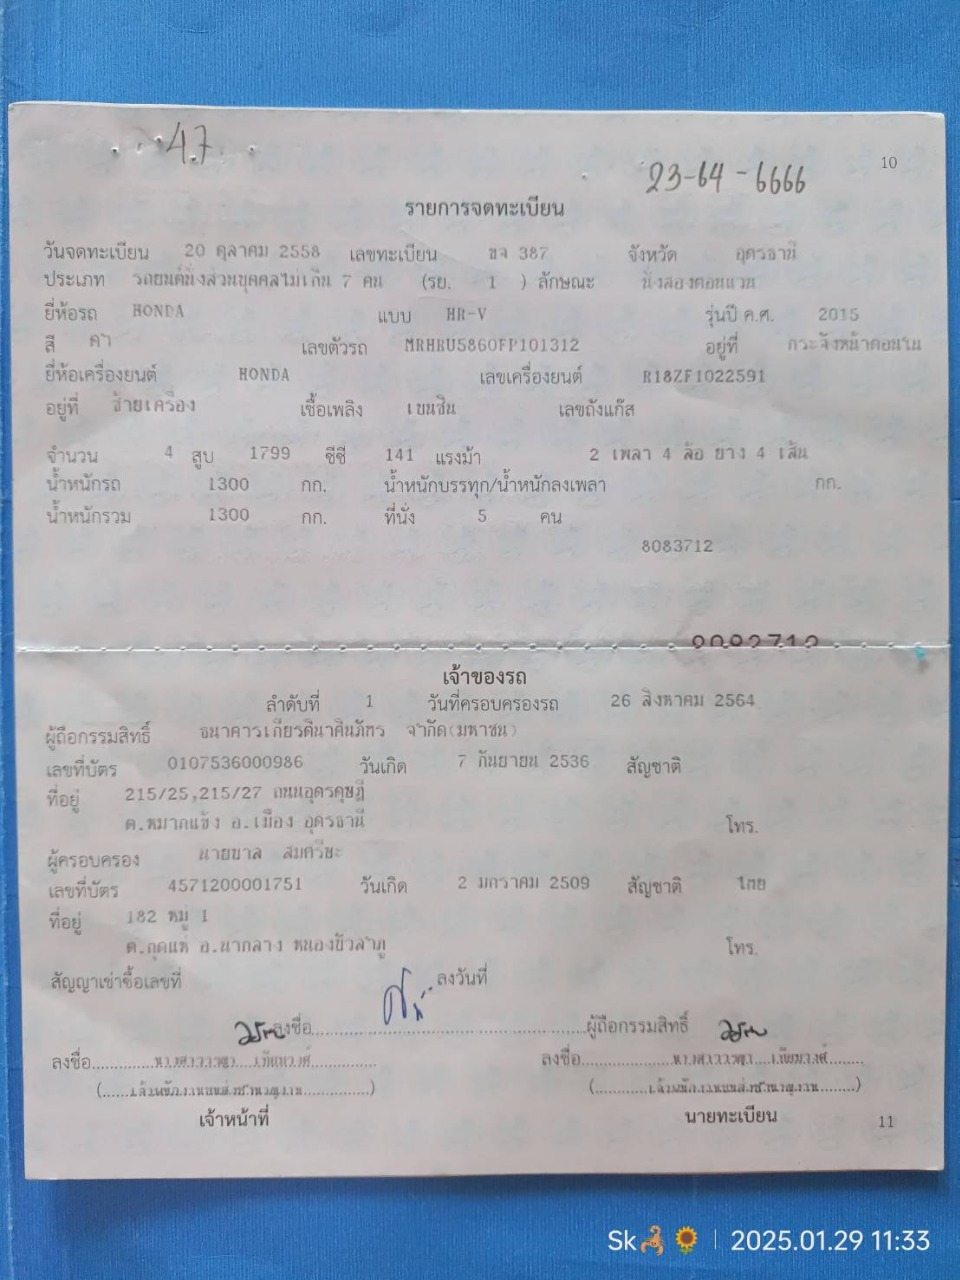 47
10
23-64-6666
รายการจดทะเบียน
วันจดทะเบียน 20 ตุลาคม 2558 เลขทะเบียน ขจ 387 จังหวัด อุดรธานี
ประเภท รถยนต์นั่งส่วนบุคคลไม่เกิน 7 คน (รย. 1 ) ลักษณะ นั่งสองตอนแวน
ยี่ห้อรถ HONDA แบบ HR-V รุ่นปี ค.ศ. 2015
สี ดำ เลขตัวรถ MRHRU5860FP101312 อยู่ที่ กระจังหน้าตอนใน
ยี่ห้อเครื่องยนต์ HONDA เลขเครื่องยนต์ R18ZF1022591
อยู่ที่ ซ้ายเครื่อง เชื้อเพลิง เบนซิน เลขถังแก๊ส
จำนวน 4 สูบ 1799 ซีซี 141 แรงม้า 2 เพลา 4 ล้อ ยาง 4 เส้น
น้ำหนักรถ 1300 กก. น้ำหนักบรรทุก/น้ำหนักลงเพลา กก.
น้ำหนักรวม 1300 กก. ที่นั่ง 5 คน
8083712
เจ้าของรถ
ลำดับที่ 1 วันที่ครอบครองรถ 26 สิงหาคม 2564
ผู้ถือกรรมสิทธิ์ ธนาคารเกียรตินาคินภัทร จำกัด(มหาชน)
เลขที่บัตร 0107536000986 วันเกิด 7 กันยายน 2536 สัญชาติ
ที่อยู่ 215/25,215/27 ถนนอุดรดุษฎี
ต.หมากแข้ง อ.เมือง อุดรธานี โทร.
ผู้ครอบครอง นายขาล สมศรีษะ
เลขที่บัตร 4571200001751 วันเกิด 2 มกราคม 2509 สัญชาติ ไทย
ที่อยู่ 182 หมู่ 1
ต.กุดแห่ อ.นากลาง หนองบัวลำภู โทร.
สัญญาเช่าซื้อเลขที่ ลงวันที่
ลงชื่อ ผู้ถือกรรมสิทธิ์
ลงชื่อ ลงชื่อ
(เจ้าพนักงานขนส่งชำนาญงาน) (เจ้าพนักงานขนส่งชำนาญงาน)
เจ้าหน้าที่ นายทะเบียน
11
Sk🦂🌻 | 2025.01.29 11:33